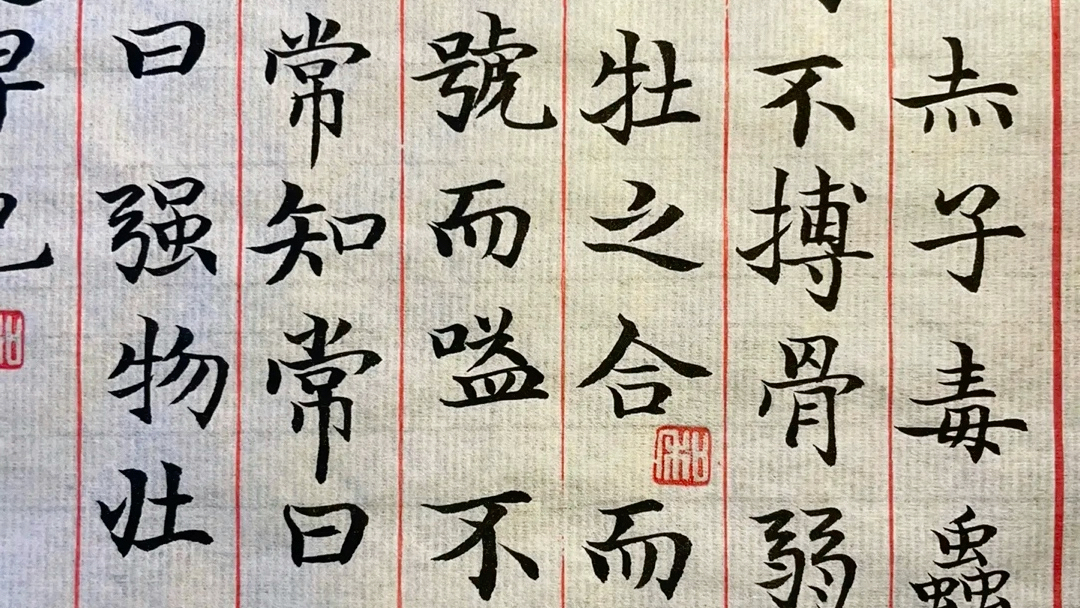 赤子毒蟲
不搏骨弱
牡之合而
號而嗌不
常知常曰
曰强物壯